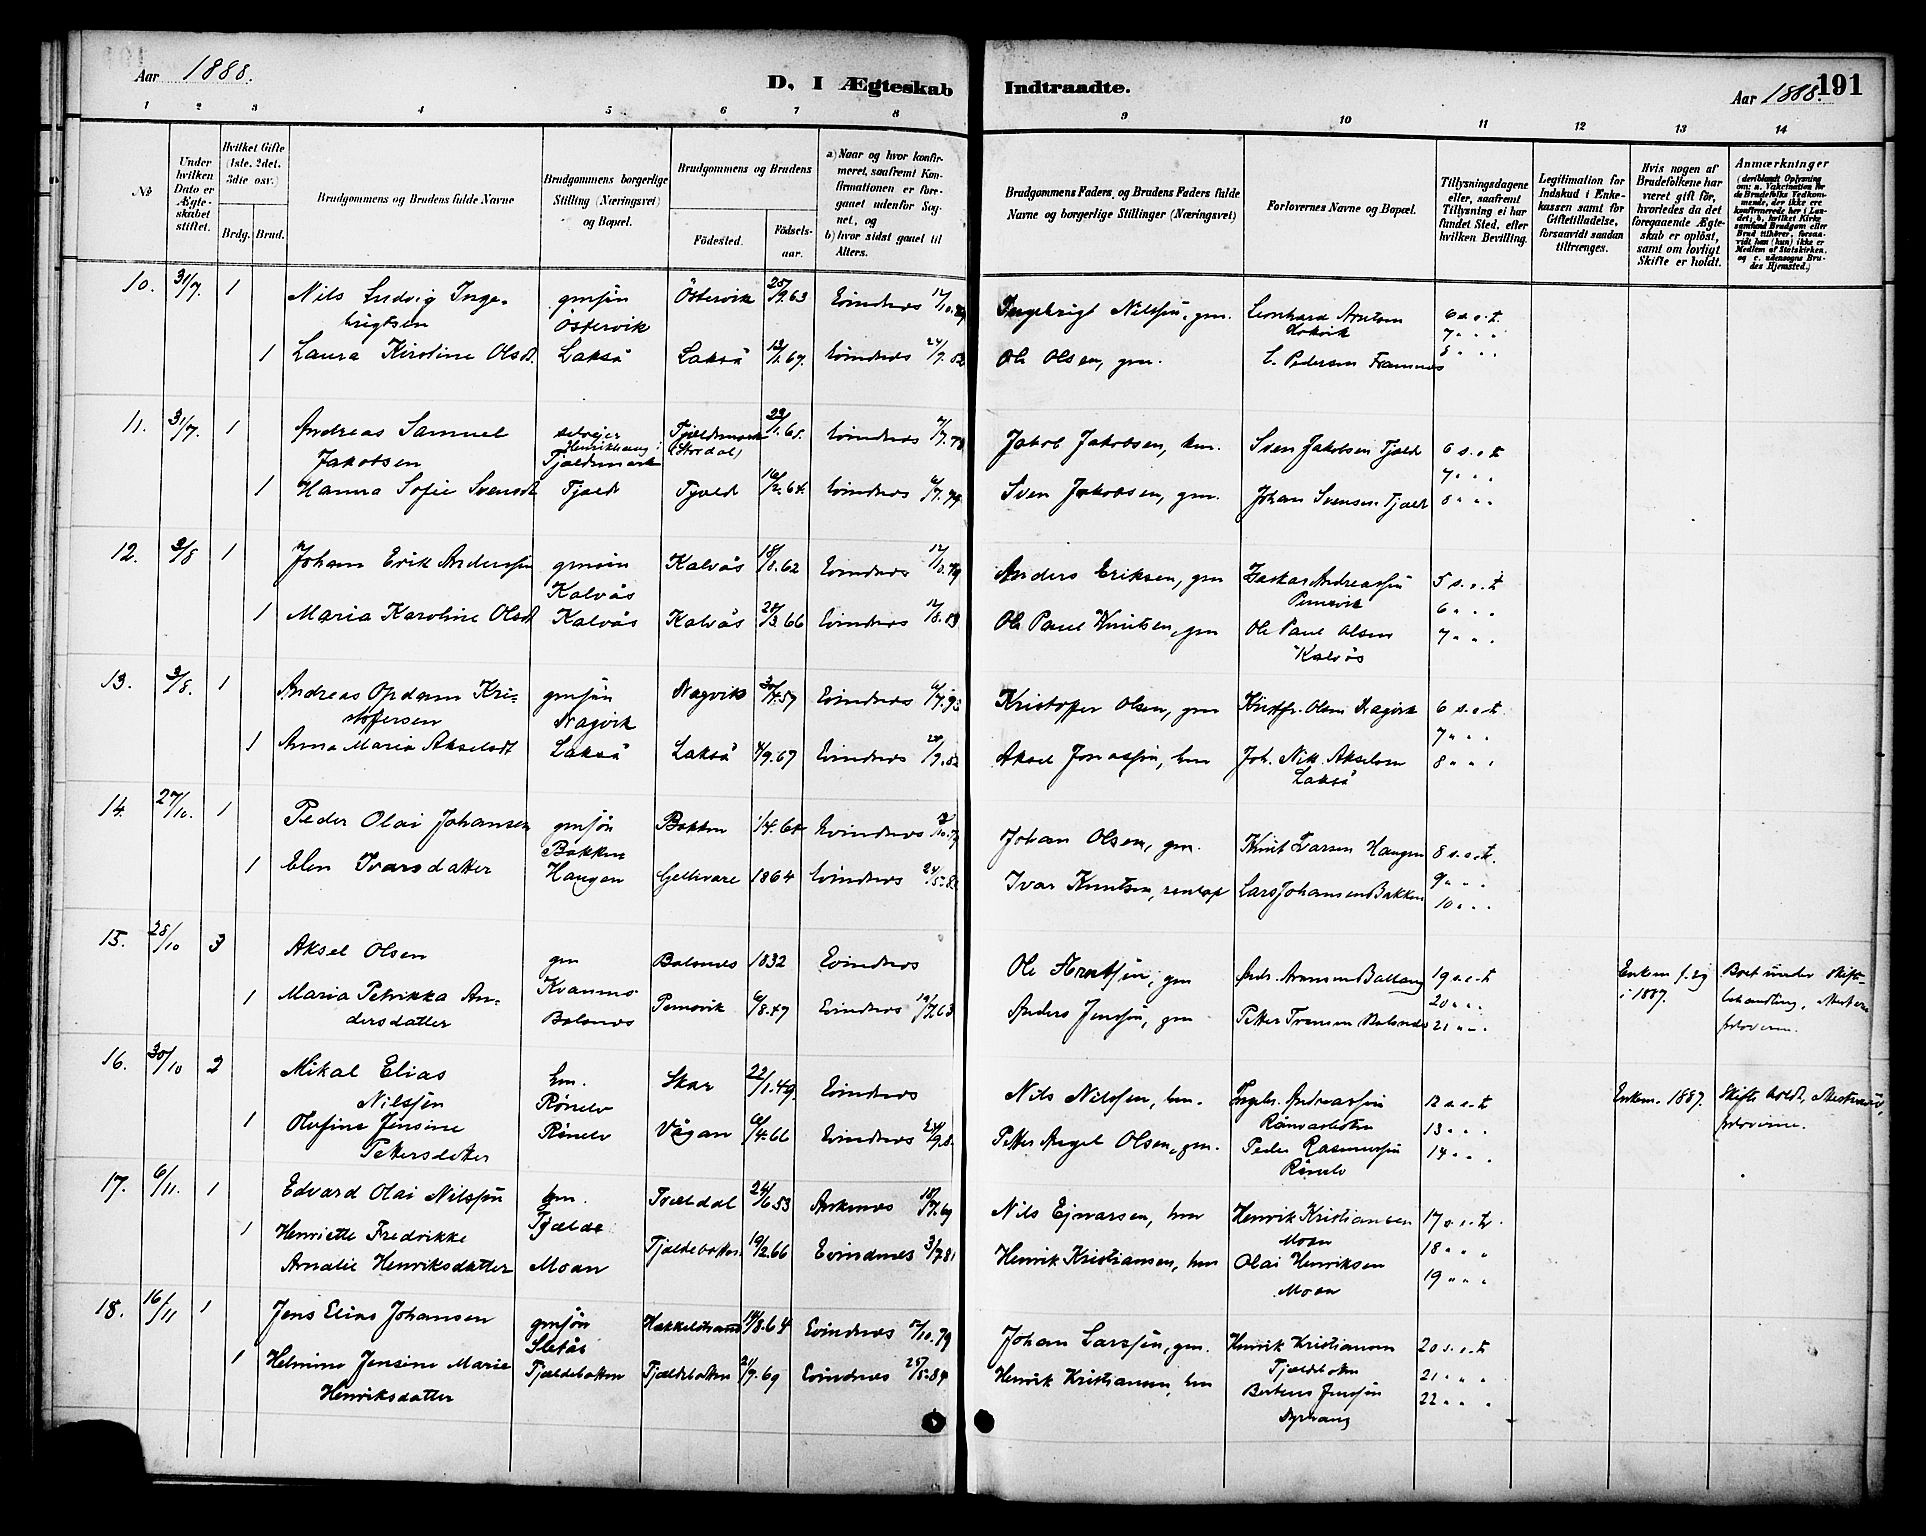 Aar 1888.
D. I Ægteskab Indtraadte.
Aar 1888. 191
1 2 3 4 5 6 7 8 9 10 11 12 13 14
No
Under hvilken Dato er Ægteskabet stiftet.
Hvilket Gifte (1ste, 2det, 3die osv.)
Brdg. Brud.
Brudgommens og Brudens fulde Navne
Brudgommens borgerlige Stilling (Næringsvei) og Bopæl.
Brudgommens og Brudens
Födested. Födselsaar.
a) Naar og hvor konfirmeret, saafremt Konfirmationen er foregaaet udenfor Sognet, og
b) hvor sidst gaaet til Alters.
Brudgommens Faders og Brudens Faders fulde Navne og borgerlige Stillinger (Næringsvei)
Forlovernes Navne og Bopæl.
Tillysningsdagene eller, saafremt Tillysning ei har fundet Sted, efter hvilken Bevilling.
Legitimation for Indskud i Enkekassen samt for Giftetilladelse, forsaavidt saadan tiltrænges.
Hvis nogen af Brudefolkene har været gift för, hvorledes da det foregaaende Ægteskab er oplöst, samt om lovligt Skifte er holdt.
Anmærkninger
10. 31/7. 1 Nils Ludvig Ingebrigtsen gmsön Östervik Östervik 25/9.63 Evindnes Ingebrigt Nilssön, gm. Leonhard Arntsen 6 s.e.t.
7 " "
1 Laura Kirstine Olsd. Lakså Lakså 13/1.67. Evindnes 24/9.82 Ole Olsen, gm. L. Pedersen Framnes 8 " "
11. 31/7. 1 Andreas Samuel Jakobsen selveier Tjeldmark (Stordal) 23/1.65. Evindnes Jakob Jakobsen, hm. Sven Jakobsen Tjeld 6 s.e.t
7 " "
1 Hanna Sofie Svensdt Tjeld Tjeld 16/2.64. Evindnes 6/7.79 Sven Jakobsen, gm. Johan Svensen Tjeld 8 " "
12. 3/8 1 Johan Erik Anderssen gmsön Kalvås Kalvås 18/8.62 Evindnes 12/10.79 Anders Eriksen, gm Zakar. Andreassön 5 s.e.t
6 " "
1 Maria Karoline Olsd Kalvås Kalvås 28/3.66 Evindnes 12/8.83 Ole Paul Knutsen, gm Ole Paul Olsen Kalvås 7 " "
13. 3/8. 1 Andreas Opdam Kristofersen gmsön Nagvik Nagvik 30/4.57 Evindnes Kristofer Olsen, gm Kristfr. Olsen Nagvik 6 s.e.t.
7 " "
1 Anna Maria Akselsdt Lakså Lakså 4/9.67 Evindnes 24/9.82 Aksel Jonassön, hm Joh. Nik. Akselsen Lakså 8 " "
14. 27/10. 1 Peder Olai Johansen gmsön Bakken Bakken 1/4.64 Evindnes Johan Olsen, gm. Knut Larsen Haugen 8 s.e.t.
9 " "
1 Elen Ivarsdatter Haugen Gellivare 1864 Evindnes Ivar Knutsen, Lars Johansen Bakken 10 " "
15. 28/10 3 Aksel Olsen gm Kvannes Balsnes 1832 Evindnes Ole Arntsön, gm Andr. Svensen Ballang 19 s.e.t Enkem. f. sig i 1887. Boet under Skiftebehandling, Attest fra forloverne.
20 " "
1 Maria Petrikka Andersdatter Balsnes Pemovik 6/8.47 Evindnes 19/7.63 Anders Jenssön, gm Petter Fransen Balsnes 21 " "
16. 30/10 2 Mikal Elias Nilssön hm. Rånelv Skar 22/1.49. Evindnes Nils Nilssen, hm. Ingebr. Andreassön 12 s.e.t Enkem. 1887. Skifte holdt, Attest fra forloverne.
13 " "
1 Olufine Jensine Pettersdatter Rånelv Vågan 6/4.66 Evindnes Petter Angel Olsen, gm. Peder Rasmussön Rånelv 14 " "
17. 6/11. 1 Edvard Olai Nilssön hm. Tjelde Tveldal 24/6.53 Ankenes 18/7.69 Nils Ejnarsen, hm Henrik Kristiansen Moan 17 s.e.t.
18 " "
1 Henriette Fredrikke Amalie Henriksdatter Moan Tjeldebotn 19/2.66 Evindnes 3/7.81 Henrik Kristiansen, hm Olai Henriksen Moan 19 " "
18. 16/11 1 Jens Elias Johansen gmsön Sletås Hækkelstrand 14/8.64 Evindnes 5/10.79 Johan Larssön, gm. Henrik Kristiansen Tjeldebotn 20 s.e.t
21 " "
1 Helmine Jensine Marie Henriksdatter Tjeldebotn Tjeldebotn 21/9.69 Evindnes 25/5.84 Henrik Kristiansen, hm Berteus Jenssön Dyrhaug 22 " "